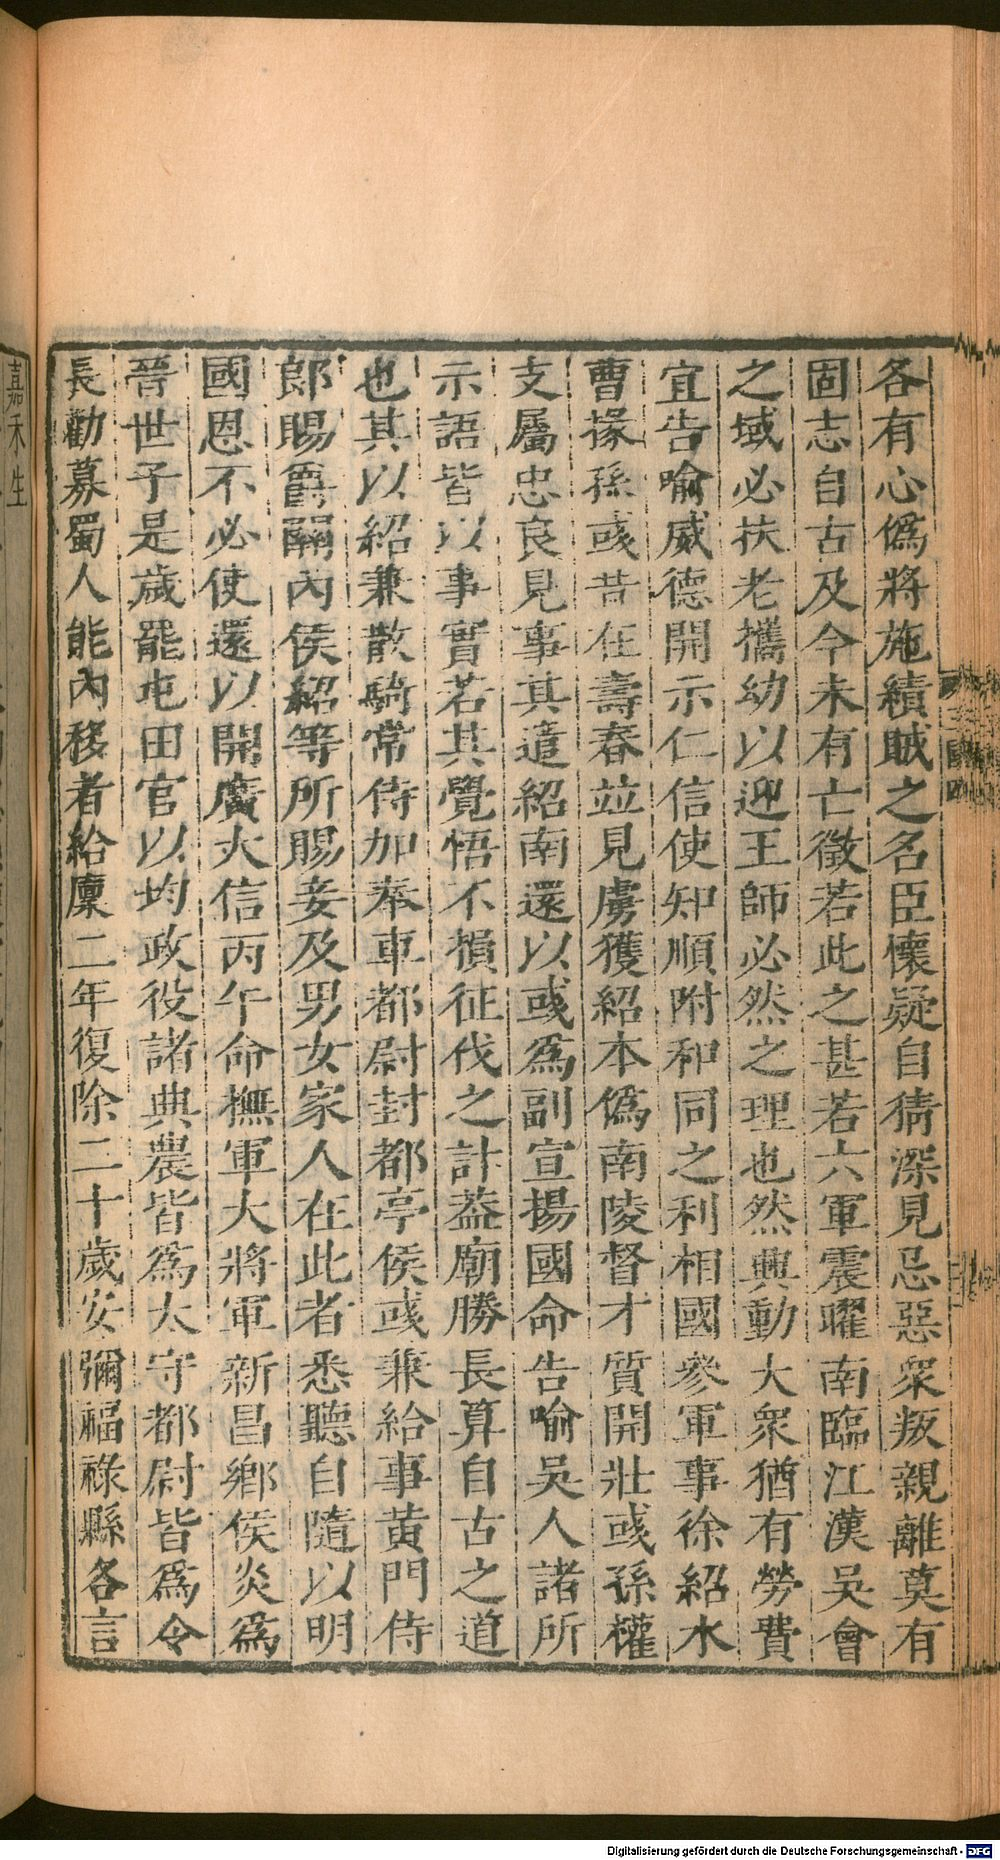 各有心偽將施績賊之名臣懷疑自猜深見忌惡衆叛親離莫有
固志自古及今未有亡徵若此之甚若六軍震曜南臨江漢吳會
之域必扶老攜幼以迎王師必然之理也然興動大衆猶有勞費
宜告喻威德開示仁信使知順附和同之利相國參軍事徐紹水
曹掾孫彧昔在壽春並見虜獲紹本偽南陵督才質開壯彧孫權
支屬忠良見事其遣紹南還以彧爲副宣揚國命告喻吳人諸所
示語皆以事實若其覺悟不損征伐之計葢廟勝長算自古之道
也其以紹兼散騎常侍加奉車都尉封都亭侯彧兼給事黄門侍
郎賜爵關內侯紹等所賜妾及男女家人在此者悉聽自隨以明
國恩不必使還以開廣大信丙午命撫軍大將軍新昌鄉侯炎爲
晉世子是歲罷屯田官以均政役諸典農皆爲太守都尉皆爲令
長勸募蜀人能內移者給廩二年復除二十歲安彌福祿縣各言
嘉禾生
Digitalisierung gefördert durch die Deutsche Forschungsgemeinschaft - DFG